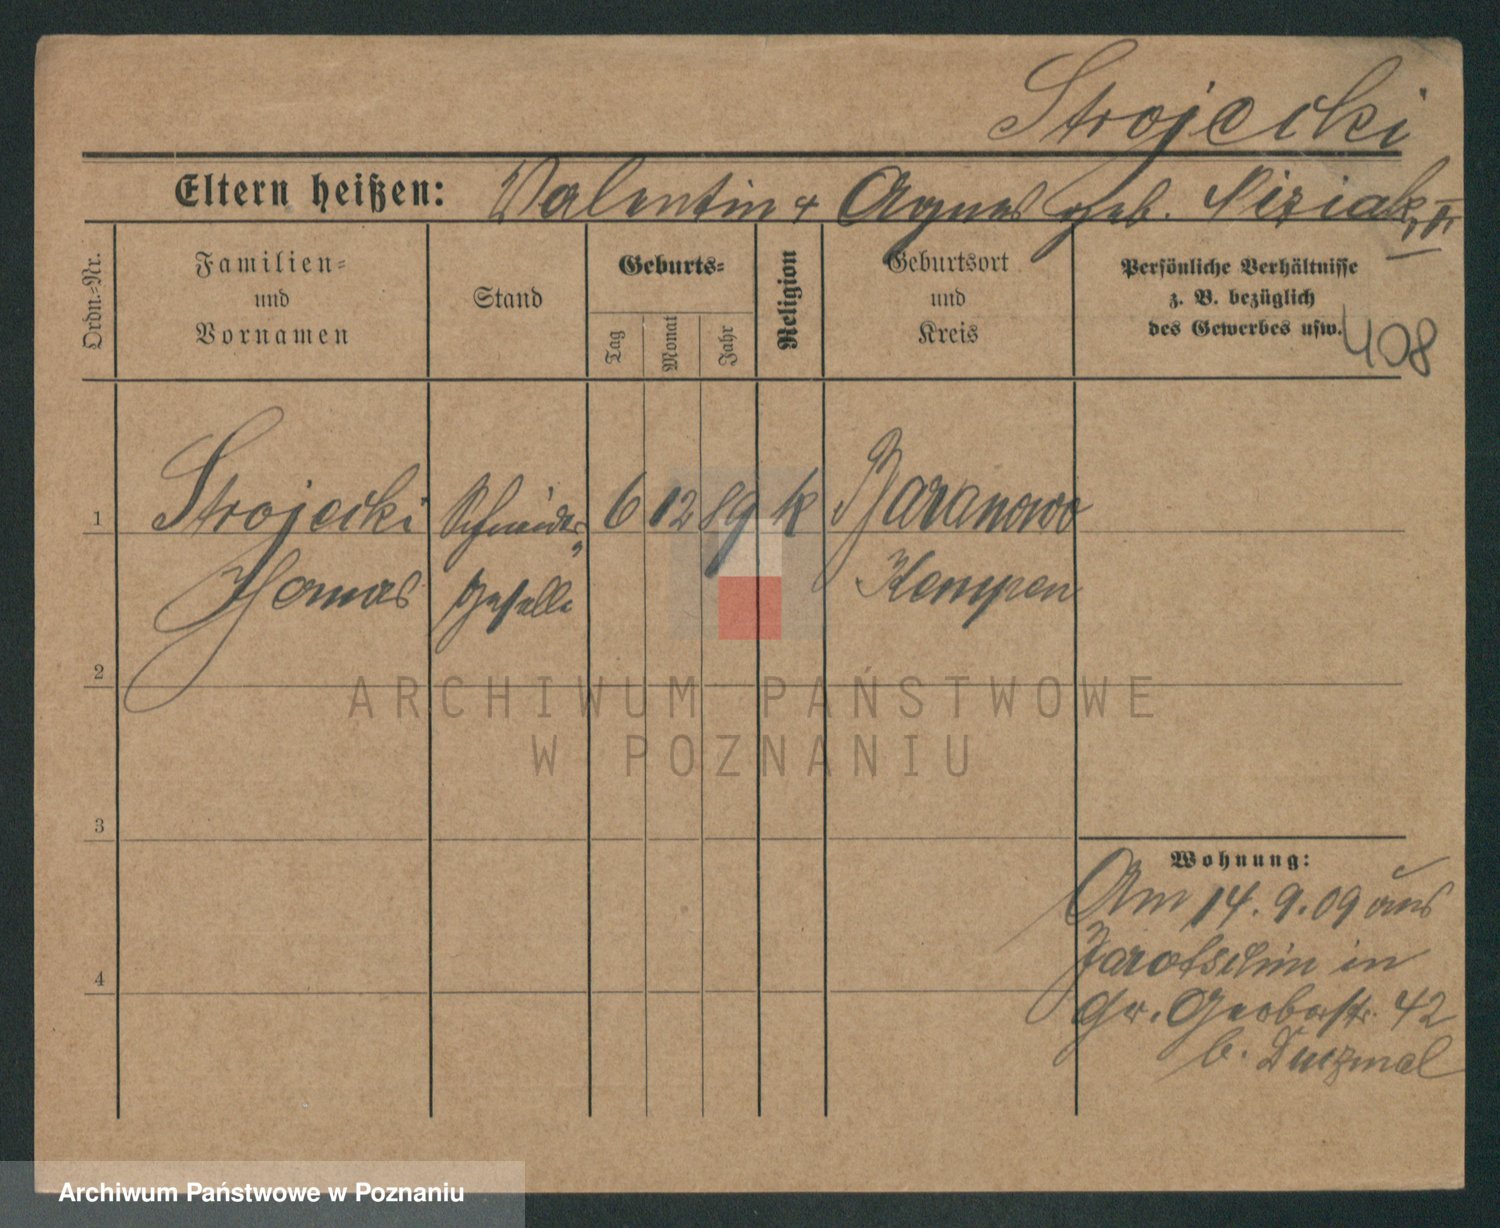 Strojecki
Eltern heißen: Valentin & Agnes geb. Niziak
II
Ordn.-Nr.
Familien-
und
Vornamen
Stand
Geburts-
Tag
Monat
Jahr
Religion
Geburtsort
und
Kreis
Persönliche Verhältnisse
z. B. bezüglich
des Gewerbes usw.
408
1 Strojecki Schneider- 6 12 89 k Baranowo
Thomas geselle Kempen
2
3
4
Wohnung:
Am 14.9.09 aus
Jarotschin in
Gr. Gerberstr. 42
b. Duczmal
ARCHIWUM PAŃSTWOWE
W POZNANIU
Archiwum Państwowe w Poznaniu